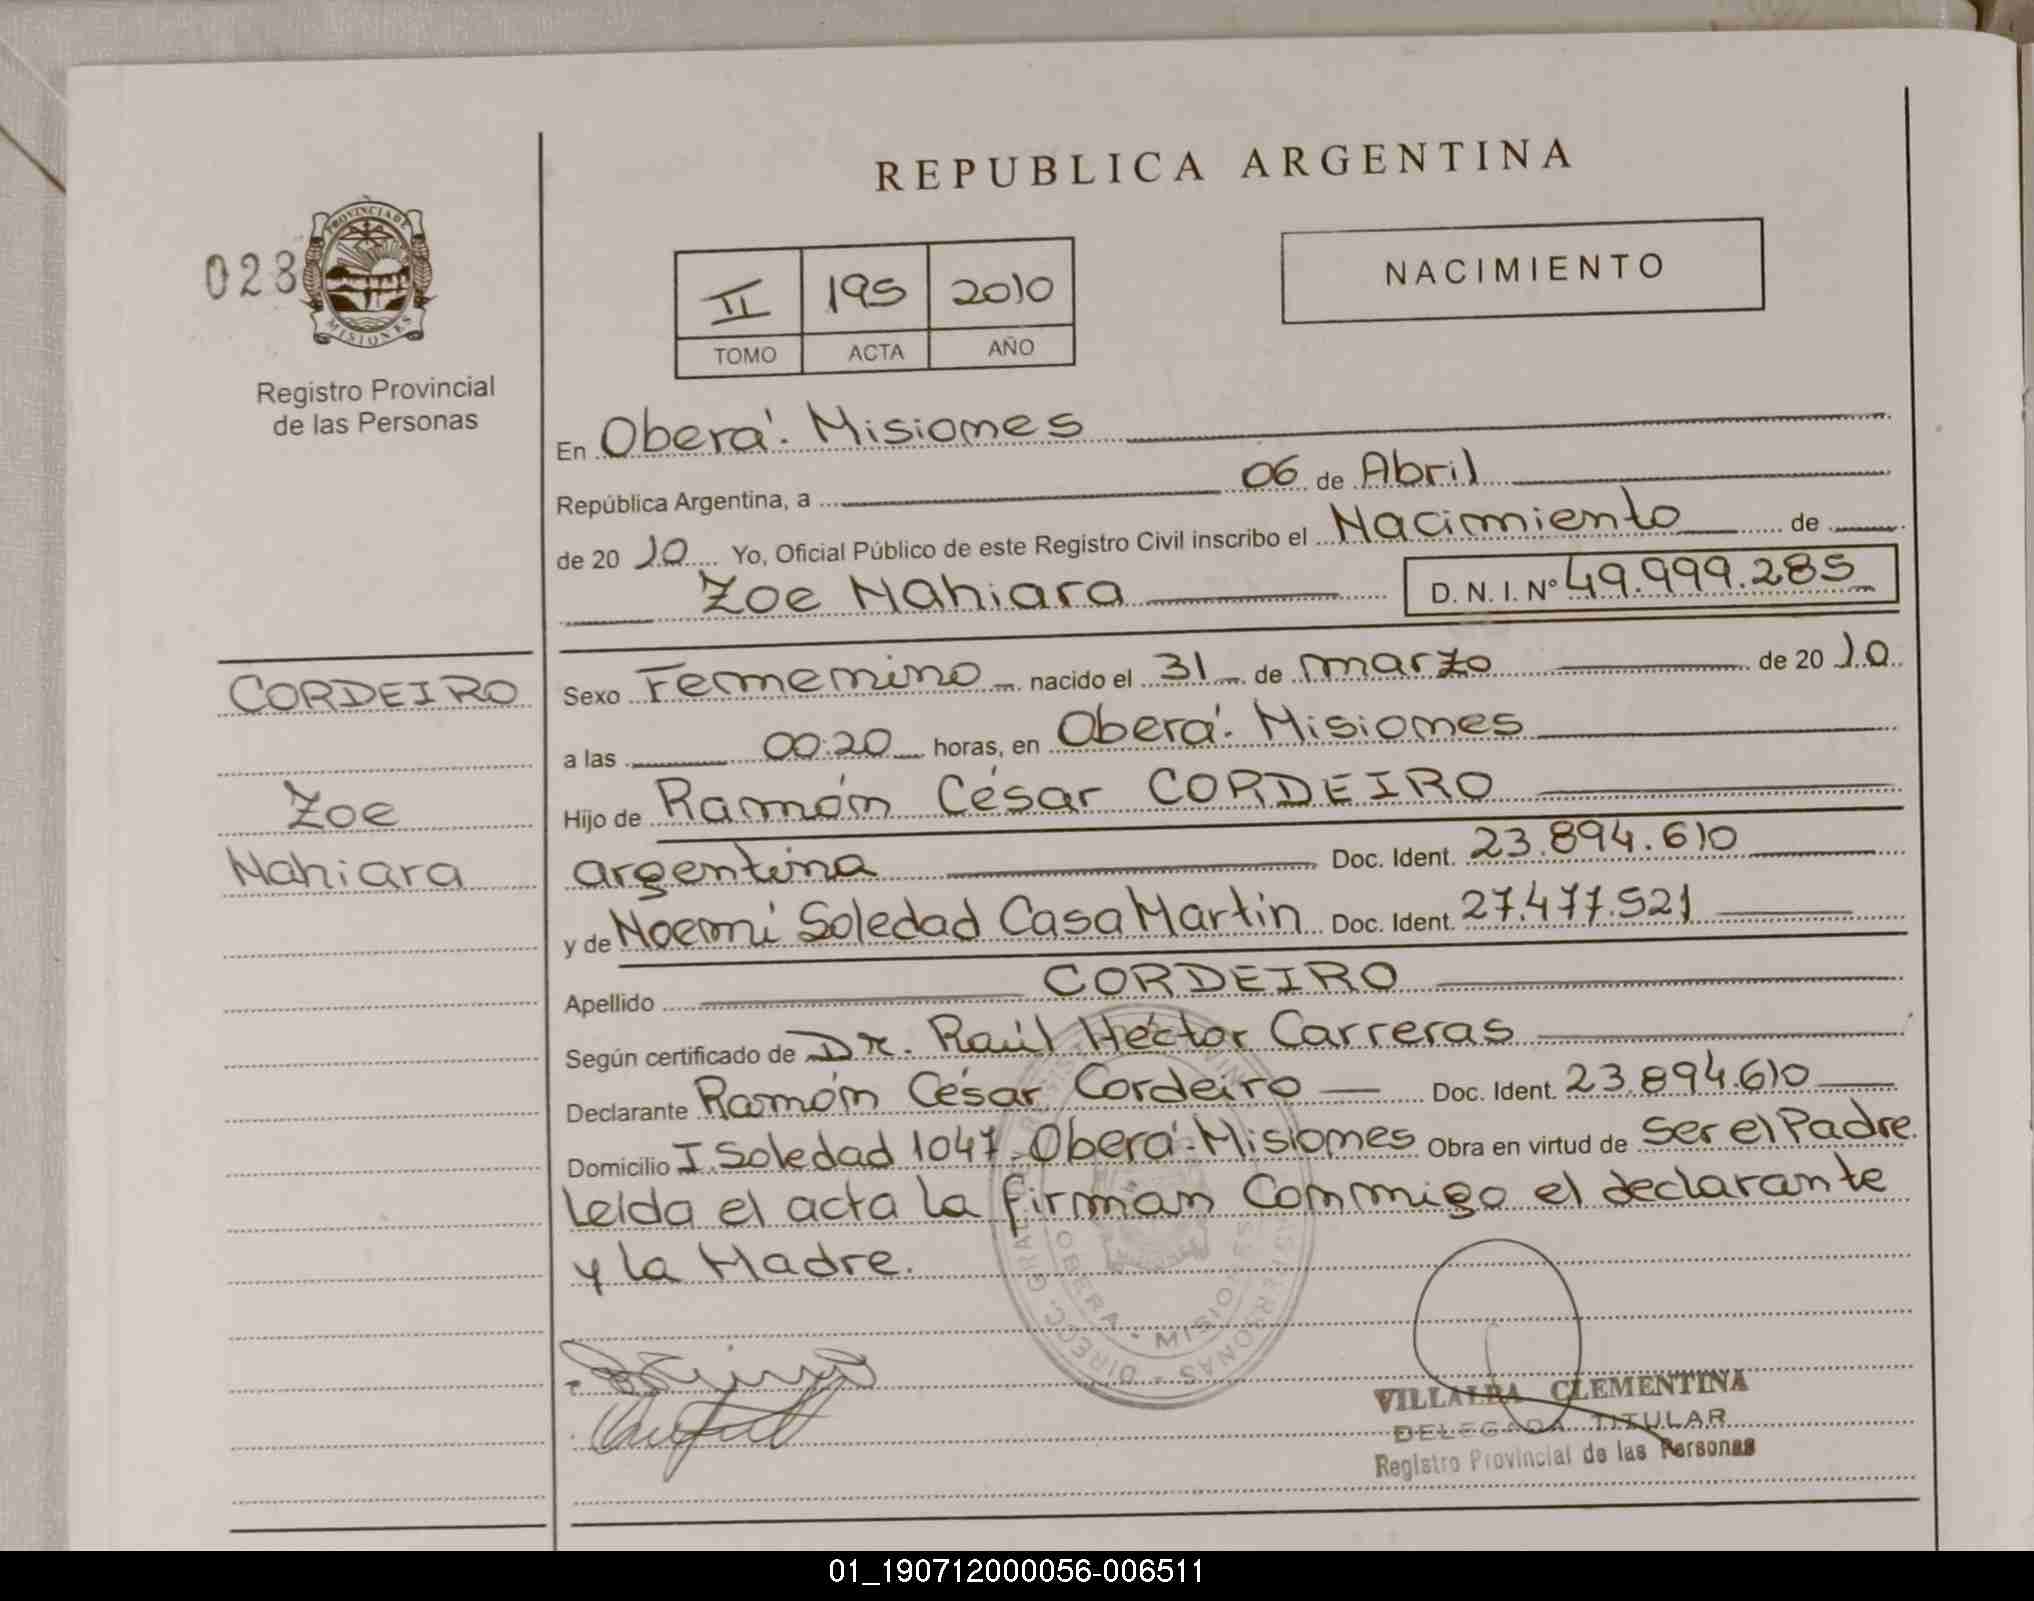 REPUBLICA ARGENTINA
028
PROVINCIA DE
MISIONES
Registro Provincial
de las Personas
II 195 2010
TOMO ACTA AÑO
NACIMIENTO
En Oberá. Misiones
República Argentina, a 06 de Abril
de 20 10 Yo, Oficial Público de este Registro Civil inscribo el Nacimiento de
Zoe Nahiara D. N. I. Nº 49.999.285
CORDEIRO
Zoe
Nahiara
Sexo Femenino nacido el 31 de marzo de 20 10
a las 00:20 horas, en Oberá. Misiones
Hijo de Ramón César CORDEIRO
argentina Doc. Ident. 23.894.610
y de Noemí Soledad Casa Martin Doc. Ident. 27.477.521
Apellido CORDEIRO
Según certificado de Dr. Raúl Héctor Carreras
Declarante Ramón César Cordeiro Doc. Ident. 23.894.610
Domicilio I. Soledad 1047. Oberá. Misiones Obra en virtud de Ser el Padre.
Leída el acta la firman Conmigo el declarante
y la Madre.
OBERA - MISIONES
VILLALBA CLEMENTINA
DELEGADA TITULAR
Registro Provincial de las Personas
01_190712000056-006511